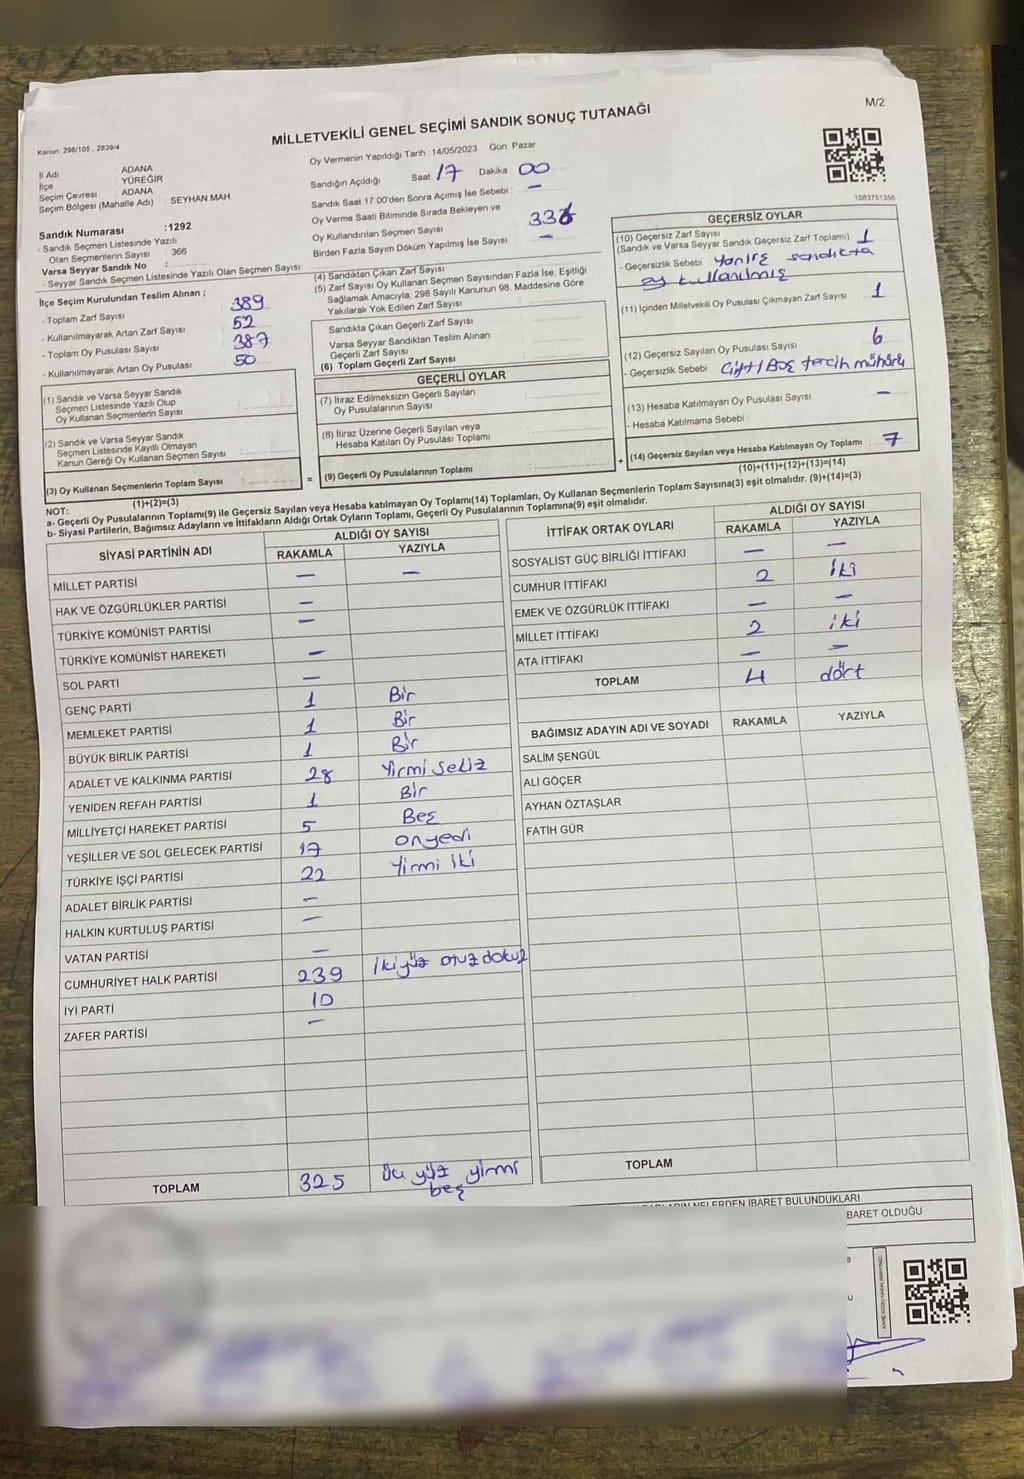 M/2
MİLLETVEKİLİ GENEL SEÇİMİ SANDIK SONUÇ TUTANAĞI
Kanun: 298/105 , 2839/4
Oy Vermenin Yapıldığı Tarih : 14/05/2023 Gün: Pazar
İl Adı : ADANA
İlçe : YÜREĞİR
Seçim Çevresi : ADANA
Seçim Bölgesi (Mahalle Adı) : SEYHAN MAH.
Sandığın Açıldığı Saat 17 Dakika 00
Sandık Saat 17.00'den Sonra Açımış İse Sebebi : —
Oy Verme Saati Bitiminde Sırada Bekleyen ve
Oy Kullandırılan Seçmen Sayısı
Birden Fazla Sayım Döküm Yapılmış İse Sayısı —
1083751356
Sandık Numarası :1292
- Sandık Seçmen Listesinde Yazılı
Olan Seçmenlerin Sayısı : 366
Varsa Seyyar Sandık No :
- Seyyar Sandık Seçmen Listesinde Yazılı Olan Seçmen Sayısı:
İlçe Seçim Kurulundan Teslim Alınan ;
- Toplam Zarf Sayısı 389
- Kullanılmayarak Artan Zarf Sayısı 52
- Toplam Oy Pusulası Sayısı 387
- Kullanılmayarak Artan Oy Pusulası 50
(1) Sandık ve Varsa Seyyar Sandık
Seçmen Listesinde Yazılı Olup
Oy Kullanan Seçmenlerin Sayısı
(2) Sandık ve Varsa Seyyar Sandık
Seçmen Listesinde Kayıtlı Olmayan
Kanun Gereği Oy Kullanan Seçmen Sayısı
(3) Oy Kullanan Seçmenlerin Toplam Sayısı
(1)+(2)=(3)
(4) Sandıktan Çıkan Zarf Sayısı
(5) Zarf Sayısı Oy Kullanan Seçmen Sayısından Fazla İse, Eşitliği
Sağlamak Amacıyla; 298 Sayılı Kanunun 98. Maddesine Göre
Yakılarak Yok Edilen Zarf Sayısı
Sandıkta Çıkan Geçerli Zarf Sayısı
Varsa Seyyar Sandıktan Teslim Alınan
Geçerli Zarf Sayısı
(6) Toplam Geçerli Zarf Sayısı
GEÇERLİ OYLAR
(7) İtiraz Edilmeksizin Geçerli Sayılan
Oy Pusulalarının Sayısı
(8) İtiraz Üzerine Geçerli Sayılan veya
Hesaba Katılan Oy Pusulası Toplamı
= (9) Geçerli Oy Pusulalarının Toplamı
GEÇERSİZ OYLAR
(10) Geçersiz Zarf Sayısı
(Sandık ve Varsa Seyyar Sandık Geçersiz Zarf Toplamı) 1
- Geçersizlik Sebebi Yanlış sandıkta
oy kullanılmış
(11) İçinden Milletvekili Oy Pusulası Çıkmayan Zarf Sayısı 1
(12) Geçersiz Sayılan Oy Pusulası Sayısı 6
- Geçersizlik Sebebi Çift/Boş tercih mühürü
(13) Hesaba Katılmayan Oy Pusulası Sayısı —
- Hesaba Katılmama Sebebi :
+ (14) Geçersiz Sayılan veya Hesaba Katılmayan Oy Toplamı 7
(10)+(11)+(12)+(13)=(14)
NOT:
a- Geçerli Oy Pusulalarının Toplamı(9) ile Geçersiz Sayılan veya Hesaba katılmayan Oy Toplamı(14) Toplamları, Oy Kullanan Seçmenlerin Toplam Sayısına(3) eşit olmalıdır. (9)+(14)=(3)
b- Siyasi Partilerin, Bağımsız Adayların ve İttifakların Aldığı Ortak Oyların Toplamı, Geçerli Oy Pusulalarının Toplamına(9) eşit olmalıdır.
SİYASİ PARTİNİN ADI ALDIĞI OY SAYISI
RAKAMLA YAZIYLA
MİLLET PARTİSİ — —
HAK VE ÖZGÜRLÜKLER PARTİSİ —
TÜRKİYE KOMÜNİST PARTİSİ —
TÜRKİYE KOMÜNİST HAREKETİ —
SOL PARTİ —
GENÇ PARTİ 1 Bir
MEMLEKET PARTİSİ 1 Bir
BÜYÜK BİRLİK PARTİSİ 1 Bir
ADALET VE KALKINMA PARTİSİ 28 Yirmi Sekiz
YENİDEN REFAH PARTİSİ 1 Bir
MİLLİYETÇİ HAREKET PARTİSİ 5 Beş
YEŞİLLER VE SOL GELECEK PARTİSİ 17 onyedi
TÜRKİYE İŞÇİ PARTİSİ 22 Yirmi iki
ADALET BİRLİK PARTİSİ —
HALKIN KURTULUŞ PARTİSİ —
VATAN PARTİSİ —
CUMHURİYET HALK PARTİSİ 239 ikiyüz otuz dokuz
İYİ PARTİ 10
ZAFER PARTİSİ —
TOPLAM 325 üç yüz yirmi
beş
İTTİFAK ORTAK OYLARI ALDIĞI OY SAYISI
RAKAMLA YAZIYLA
SOSYALİST GÜÇ BİRLİĞİ İTTİFAKI — —
CUMHUR İTTİFAKI 2 iki
EMEK VE ÖZGÜRLÜK İTTİFAKI — —
MİLLET İTTİFAKI 2 iki
ATA İTTİFAKI — —
TOPLAM 4 dört
BAĞIMSIZ ADAYIN ADI VE SOYADI RAKAMLA YAZIYLA
SALİM ŞENGÜL
ALİ GÖÇER
AYHAN ÖZTAŞLAR
FATİH GÜR
TOPLAM
NELERDEN İBARET BULUNDUKLARI
BARET OLDUĞU